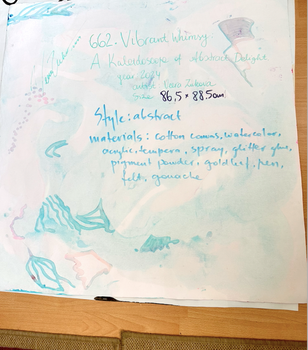 662. Vibrant Whimsy:
A Kaleidoscope of Abstract Delight
year, 2024
size: 86,5 x 88.5cm
Style: abstract
materials: cotton canvas, watercolor,
acrylic, tempera, spray, glitter glue,
pigment powder, gold leaf, pen,
felt, gouache